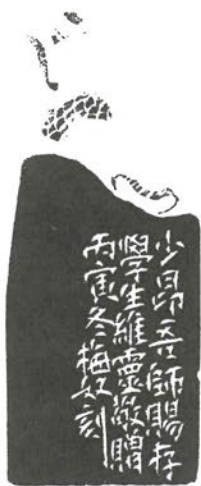 少昂吾師賜存
學生維靈敬贈
丙寅冬梅奴刻